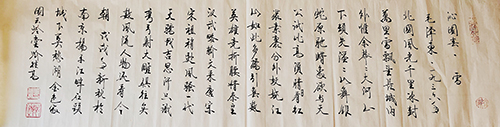 沁园春·雪
毛泽东 一九三六年
北国风光千里冰封
万里雪飘望长城内
外惟余莽莽大河上
下顿失滔滔山舞银
蛇原驰蜡象欲与天
公试比高须晴日看红
装素裹分外妖娆江
山如此多娇引无数
英雄竞折腰惜秦皇
汉武略输文采唐宗
宋祖稍逊风骚一代
天骄成吉思汗只识
弯弓射大雕俱往矣
数风流人物还看今
朝 戊戌
南京扬子江畔石头
城 莫愁湖金色家